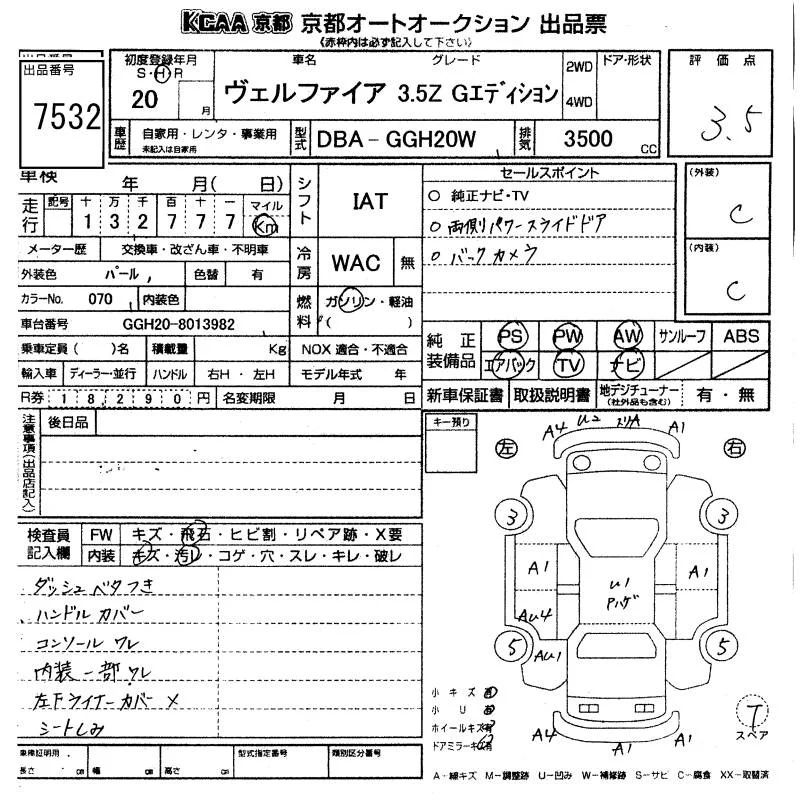 KCAA 京都 京都オートオークション 出品票
《赤枠内は必ず記入して下さい》
出品番号
7532
初度登録年月
S・H・R
20
月
車名
グレード
ヴェルファイア 3.5Z Gエディション
2WD
4WD
ドア・形状
評価点
3.5
車歴
自家用・レンタ・事業用
未記入は自家用
型式
DBA-GGH20W
排気
3500 CC
車検 年 月( 日)
走行
記号 十 万 千 百 十 一 マイル
1 3 2 7 7 7 Km
メーター歴 交換車・改ざん車・不明車
外装色 パール
色替 有
カラーNo. 070 内装色
車台番号 GGH20-8013982
シフト IAT
冷房 WAC 無
燃料 ガソリン・軽油
( )
セールスポイント
○ 純正ナビ・TV
○ 両側パワースライドドア
○ バックカメラ
(外装)
C
(内装)
C
純正装備品
PS PW AW サンルーフ ABS
エアバック TV ナビ
乗車定員( )名 積載量 Kg NOX 適合・不適合
輸入車 ディーラー・並行 ハンドル 右H・左H モデル年式 年
新車保証書 取扱説明書 地デジチューナー(社外品も含む) 有・無
R券 18290円 名変期限 月 日
注意事項(出品店記入)
後日品
キー預り
検査員記入欄
FW キズ・飛石・ヒビ割・リペア跡・X要
内装 キズ・汚レ・コゲ・穴・スレ・キレ・破レ
ダッシュベタつき
ハンドルカバー
コンソールワレ
内装一部ワレ
左下ライナーカバー×
シートしみ
左
右
A4 U2 スリA A1
3
3
A1
A1
U1
Pハゲ
AU4
5
AU1
5
A4
A1
小キズ 有
小U 有
ホイールキズ有
ドアミラーキズ有
T
スペア
車庫証明用
長さ cm 幅 cm 高さ cm
型式指定番号
類別区分番号
A-線キズ M-調整跡 U-凹み W-補修跡 S-サビ C-腐食 XX-取替済